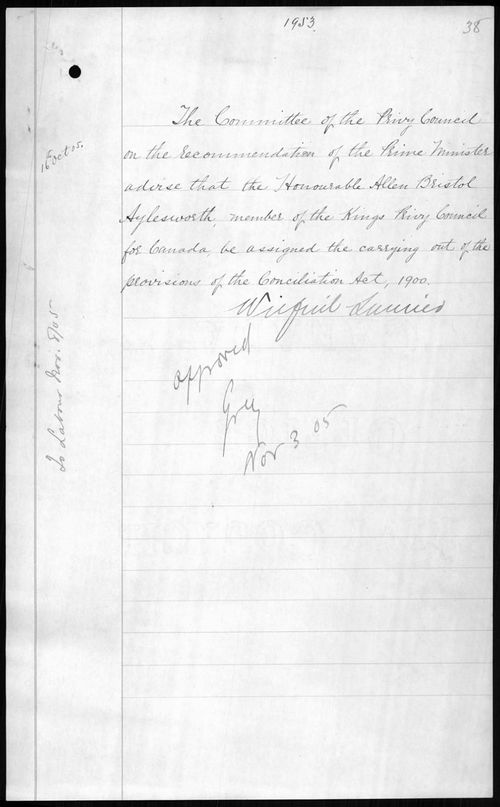 1953
38
16 Oct 05.
The Committee of the Privy Council
on the recommendation of the Prime Minister
advise that the Honourable Allen Bristol
Aylesworth, member of the Kings Privy Council
for Canada, be assigned the carrying out of the
provisions of the Conciliation Act, 1900.
Wilfrid Laurier
approved
Grey
Nov 3 05
To Labour Nov. 8/05